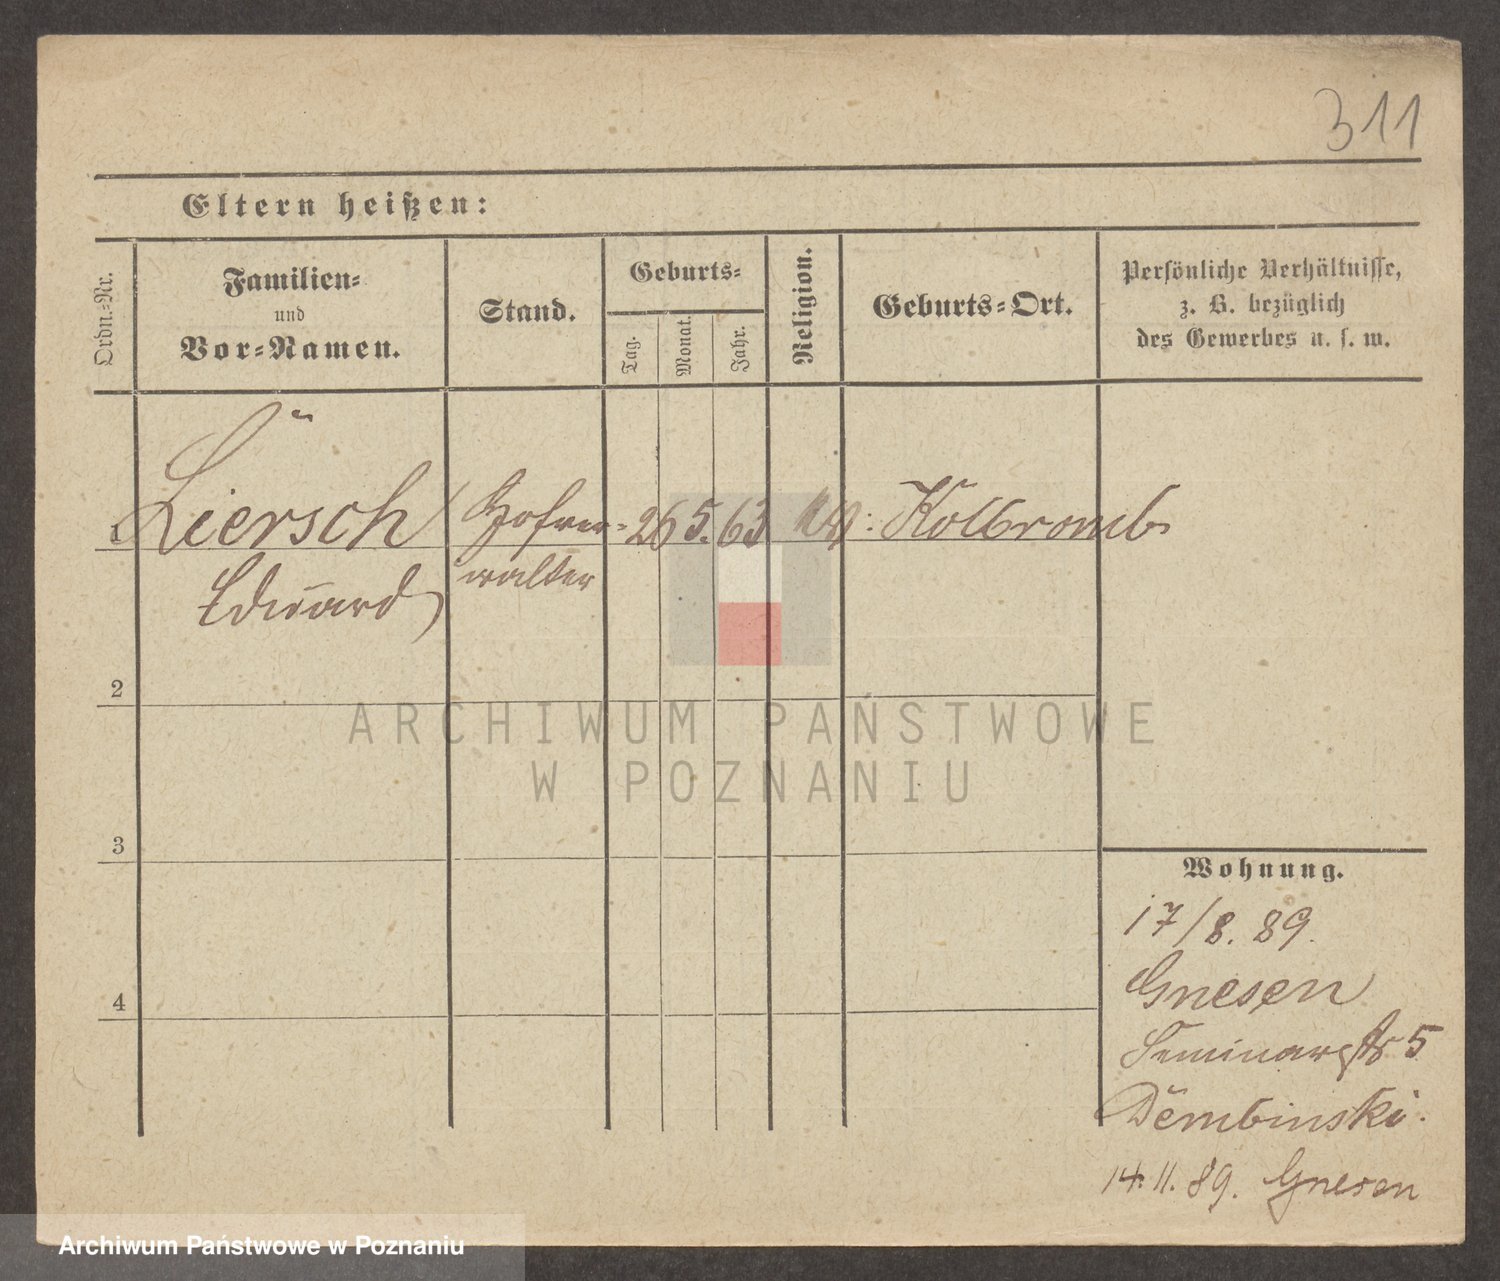 311
Eltern heißen:
Ordn.-Nr.
Familien-
und
Vor-Namen.
Stand.
Geburts-
Tag.
Monat.
Jahr.
Religion.
Geburts-Ort.
Persönliche Verhältnisse,
z. B. bezüglich
des Gewerbes u. s. w.
1 Liersch Hofver- 26 5. 63 Kolbromb
Eduard walter
2
ARCHIWUM PAŃSTWOWE
W POZNANIU
3
Wohnung.
17/8. 89.
Gnesen
4
Seminarstr 5
Dembinski.
14. 11. 89. Gnesen
Archiwum Państwowe w Poznaniu